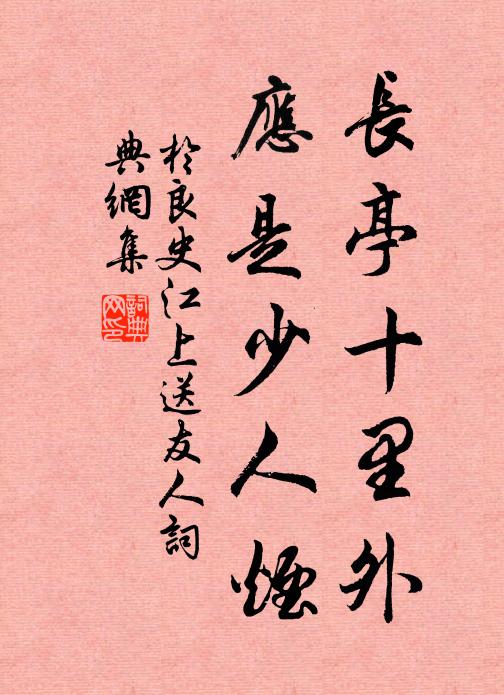 長亭十里外
應是少人煙
於良史江上送友人詞
典網集
詞典网印